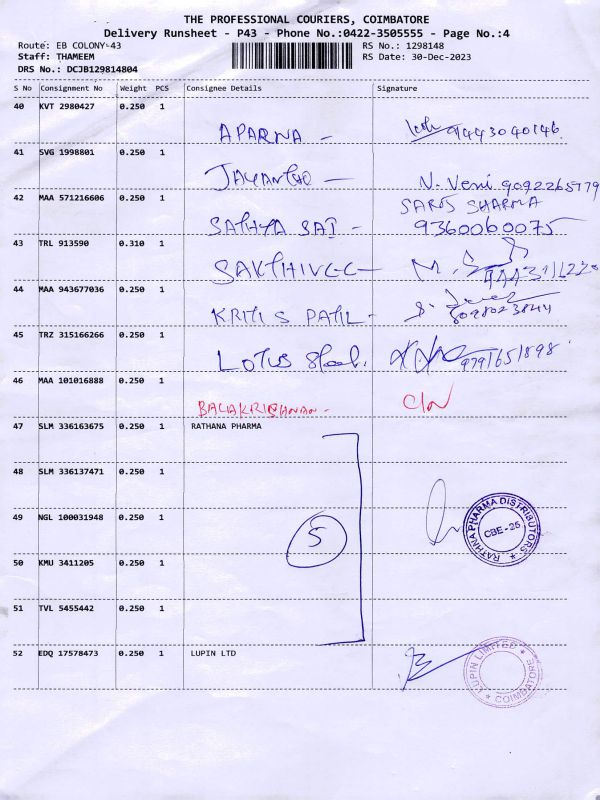 THE PROFESSIONAL COURIERS, COIMBATORE
Delivery Runsheet - P43 - Phone No.:0422-3505555 - Page No.:4
Route: EB COLONY-43 RS No.: 1298148
Staff: THAMEEM RS Date: 30-Dec-2023
DRS No.: DCJB129814804
S No Consignment No Weight PCS Consignee Details Signature
40 KVT 2980427 0.250 1
APARNA - 9443040146
41 SVG 1998801 0.250 1
N. Veni 9092265779
42 MAA 571216606 0.250 1 SARIS SHARMA
SATHYA SAI - 9360060075
43 TRL 913590 0.310 1
SAKTHIVEL -
44 MAA 943677036 0.250 1
KRITI S PATIL -
45 TRZ 315166266 0.250 1
LOTUS 9791651898
46 MAA 101016888 0.250 1
BALAKRISHNAN -
47 SLM 336163675 0.250 1 RATHANA PHARMA
48 SLM 336137471 0.250 1
49 NGL 100031948 0.250 1
5
RATHNA PHARMA DISTRIBUTORS
CBE-25
50 KMU 3411205 0.250 1
51 TVL 5455442 0.250 1
52 EDQ 17578473 0.250 1 LUPIN LTD
LUPIN LIMITED
COIMBATORE